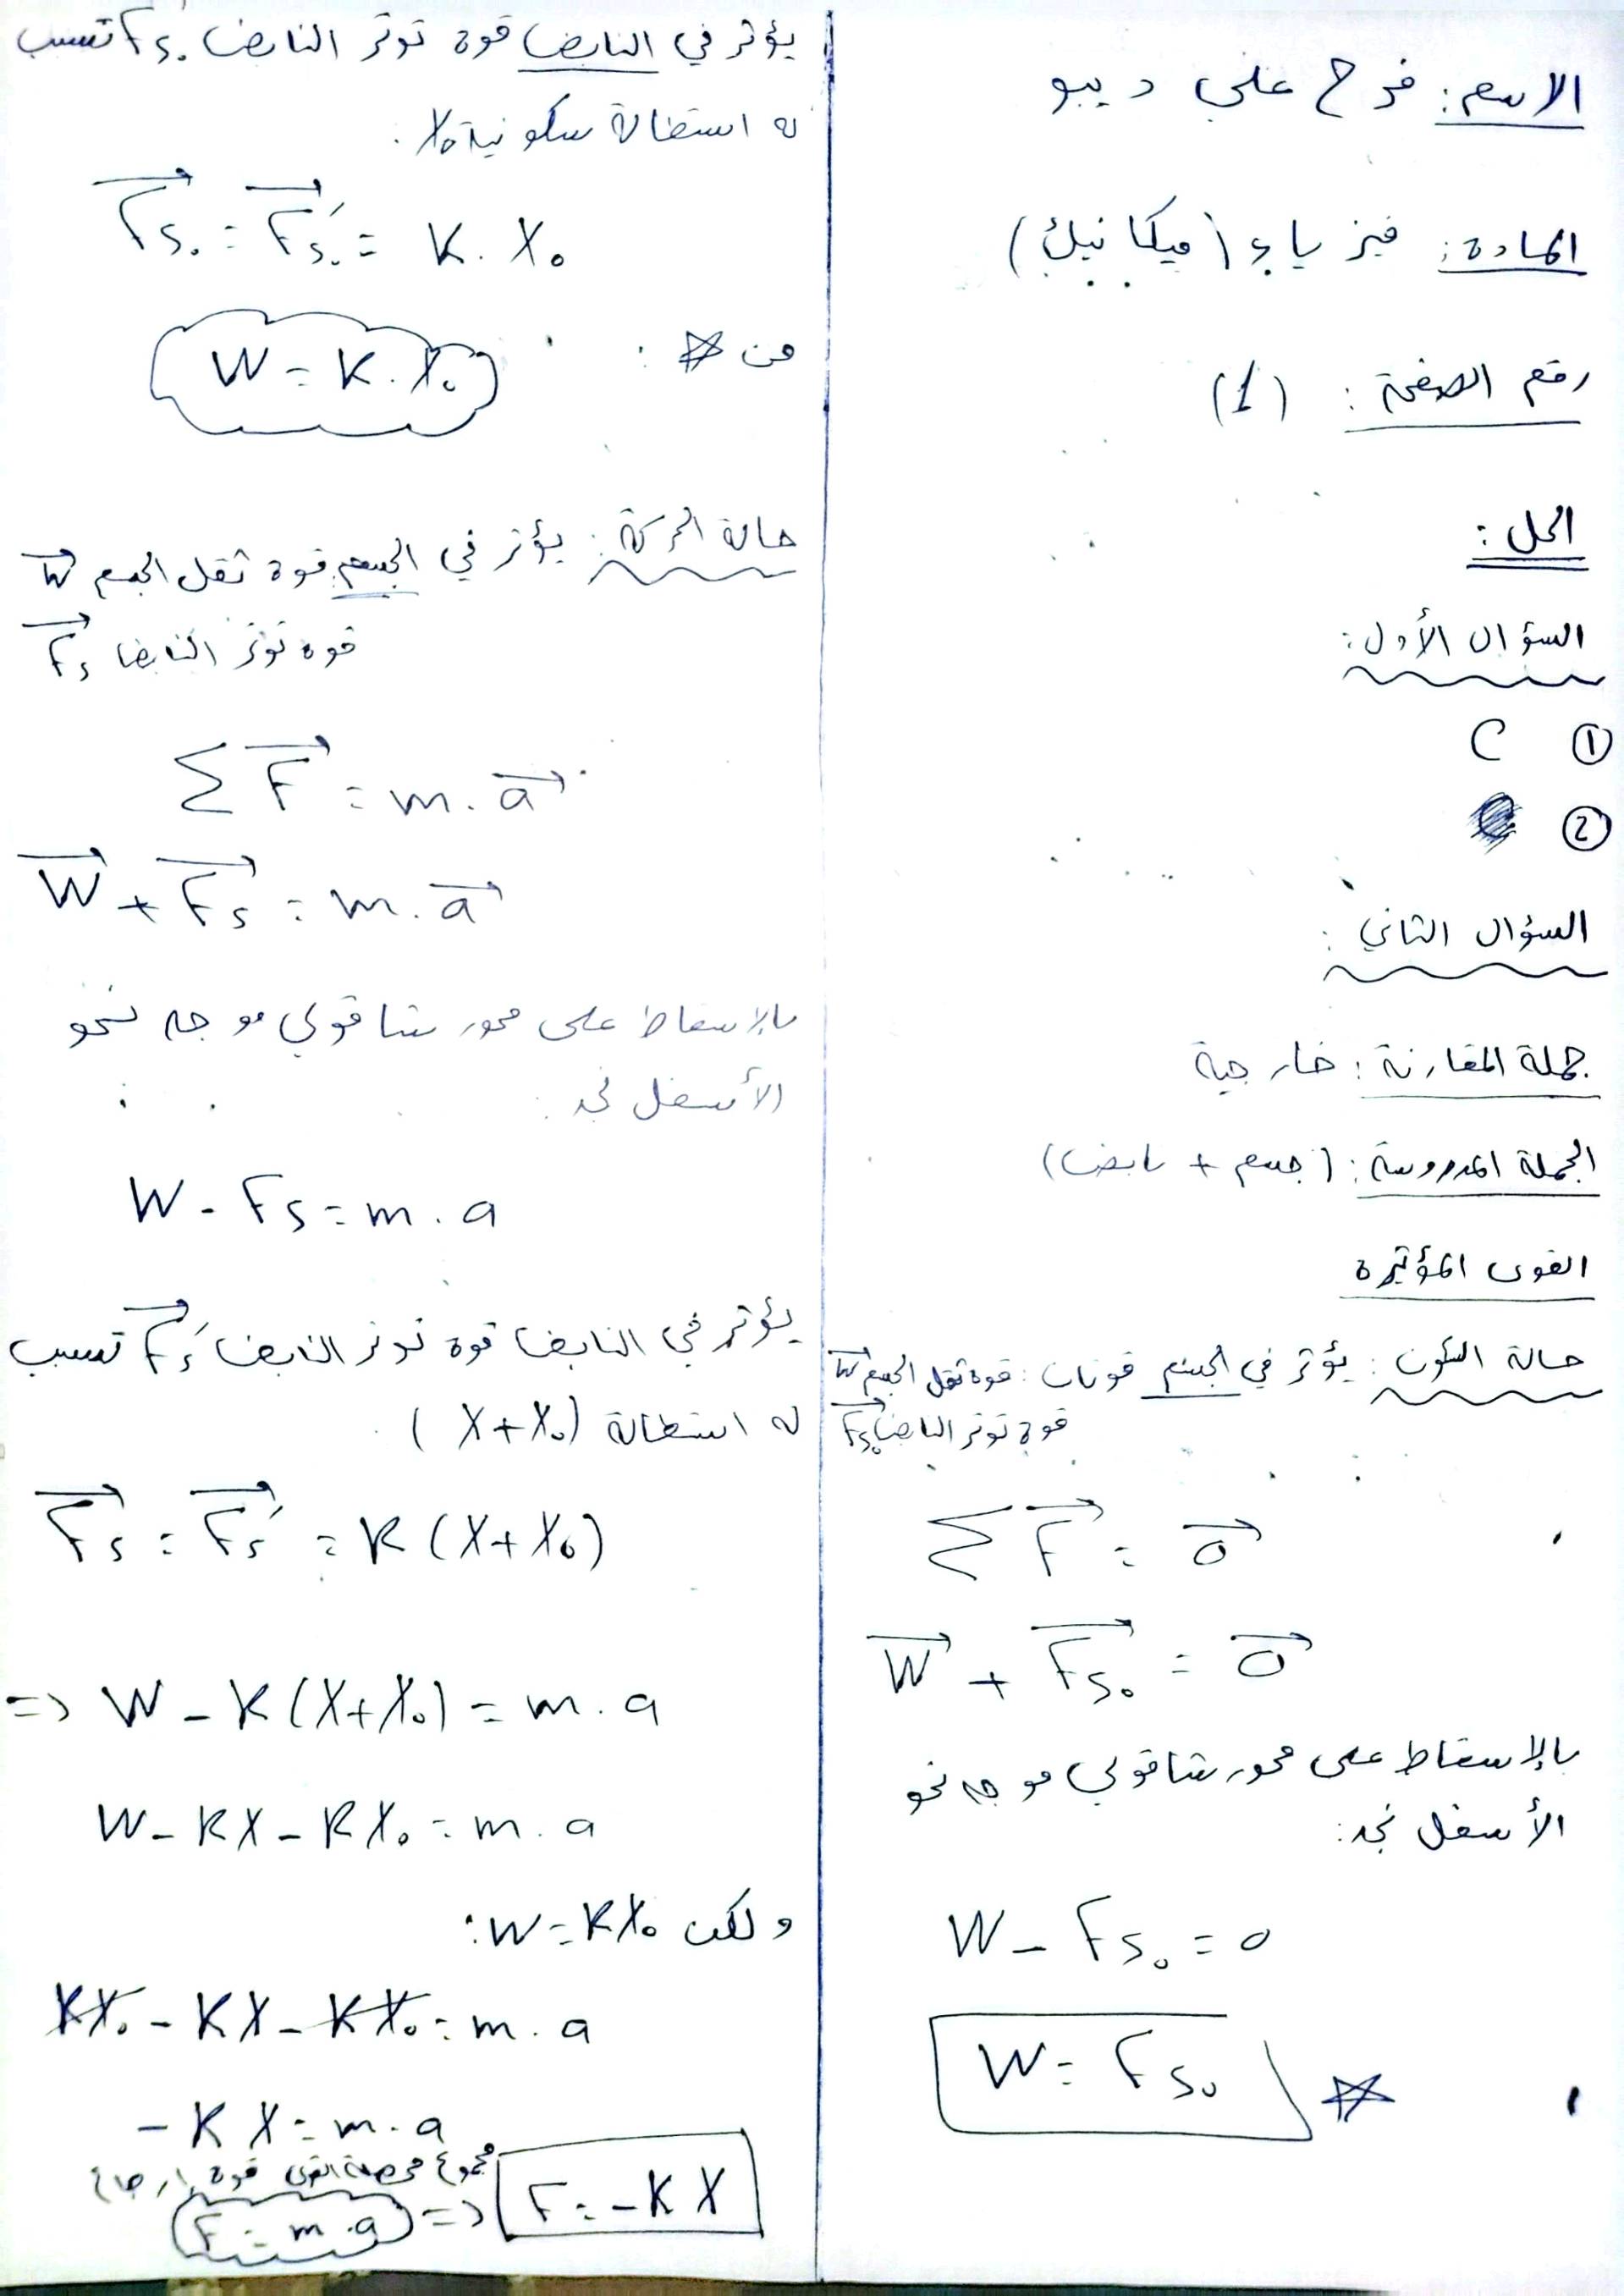 الاسم: فرح علي ديبو
المادة: فيزياء (ميكانيك)
رقم الصفحة: (1)
الحل:
السؤال الأول:
① C
②
السؤال الثاني:
جملة المقارنة: خارجية
الجملة المدروسة: (جسم + نابض)
القوى المؤثرة
حالة السكون: يؤثر في الجسم قوتان: قوة ثقل الجسم W
قوة توتر النابض Fs₀
∑F⃗ = 0⃗
W⃗ + F⃗s₀ = 0⃗
بالإسقاط على محور شاقولي موجه نحو
الأسفل نجد:
W - Fs₀ = 0
W = Fs₀ ☆
يؤثر في النابض قوة توتر النابض Fs₀' تسبب
له استطالة سكونية X₀:
F⃗s₀ = F⃗s₀' = K . X₀
من ☆: W = K . X₀
حالة الحركة: يؤثر في الجسم قوة ثقل الجسم W⃗
قوة توتر النابض F⃗s
∑F⃗ = m . a⃗
W⃗ + F⃗s = m . a⃗
بالإسقاط على محور شاقولي موجه نحو
الأسفل نجد:
W - Fs = m . a
يؤثر في النابض قوة توتر النابض F⃗s' تسبب
له استطالة (X + X₀)
F⃗s = F⃗s' = K (X + X₀)
=> W - K (X + X₀) = m . a
W - KX - KX₀ = m . a
ولكن W = KX₀:
KX₀ - KX - KX₀ = m . a
- K X = m . a
مجموع محصلة القوى قوة إرجاع
F = m . a => F = - K X